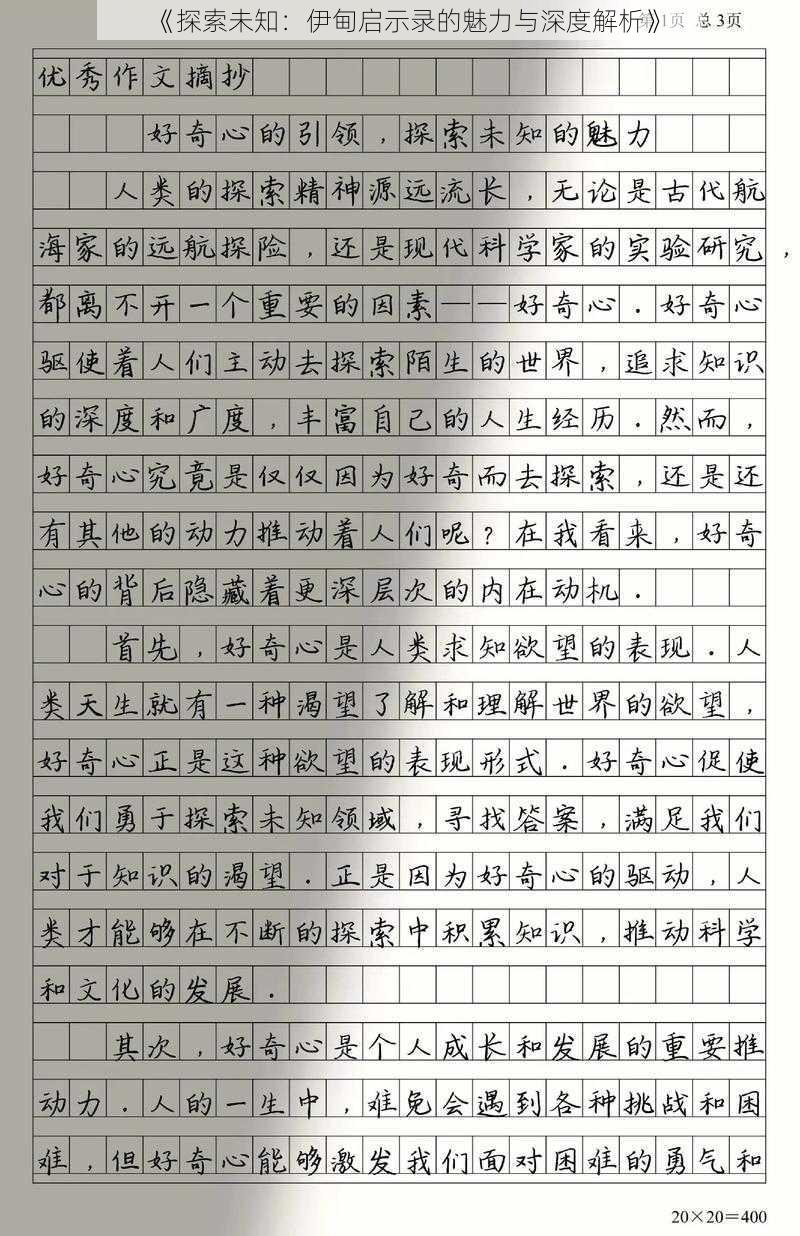 《探索未知：伊甸启示录的魅力与深度解析》
第1页 总3页
优秀作文摘抄
好奇心的引领，探索未知的魅力
人类的探索精神源远流长，无论是古代航
海家的远航探险，还是现代科学家的实验研究，
都离不开一个重要的因素——好奇心．好奇心
驱使着人们主动去探索陌生的世界，追求知识
的深度和广度，丰富自己的人生经历．然而，
好奇心究竟是仅仅因为好奇而去探索，还是还
有其他的动力推动着人们呢？在我看来，好奇
心的背后隐藏着更深层次的内在动机．
首先，好奇心是人类求知欲望的表现．人
类天生就有一种渴望了解和理解世界的欲望，
好奇心正是这种欲望的表现形式．好奇心促使
我们勇于探索未知领域，寻找答案，满足我们
对于知识的渴望．正是因为好奇心的驱动，人
类才能够在不断的探索中积累知识，推动科学
和文化的发展．
其次，好奇心是个人成长和发展的重要推
动力．人的一生中，难免会遇到各种挑战和困
难，但好奇心能够激发我们面对困难的勇气和
20×20＝400